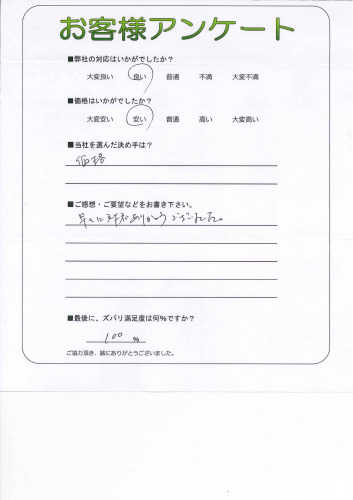 お客様アンケート
■弊社の対応はいかがでしたか？
大変良い 良い 普通 不満 大変不満
■価格はいかがでしたか？
大変安い 安い 普通 高い 大変高い
■当社を選んだ決め手は？
価格
■ご感想・ご要望などをお書き下さい。
早くに対応ありがとうございました。
■最後に、ズバリ満足度は何%ですか？
100 %
ご協力頂き、誠にありがとうございました。